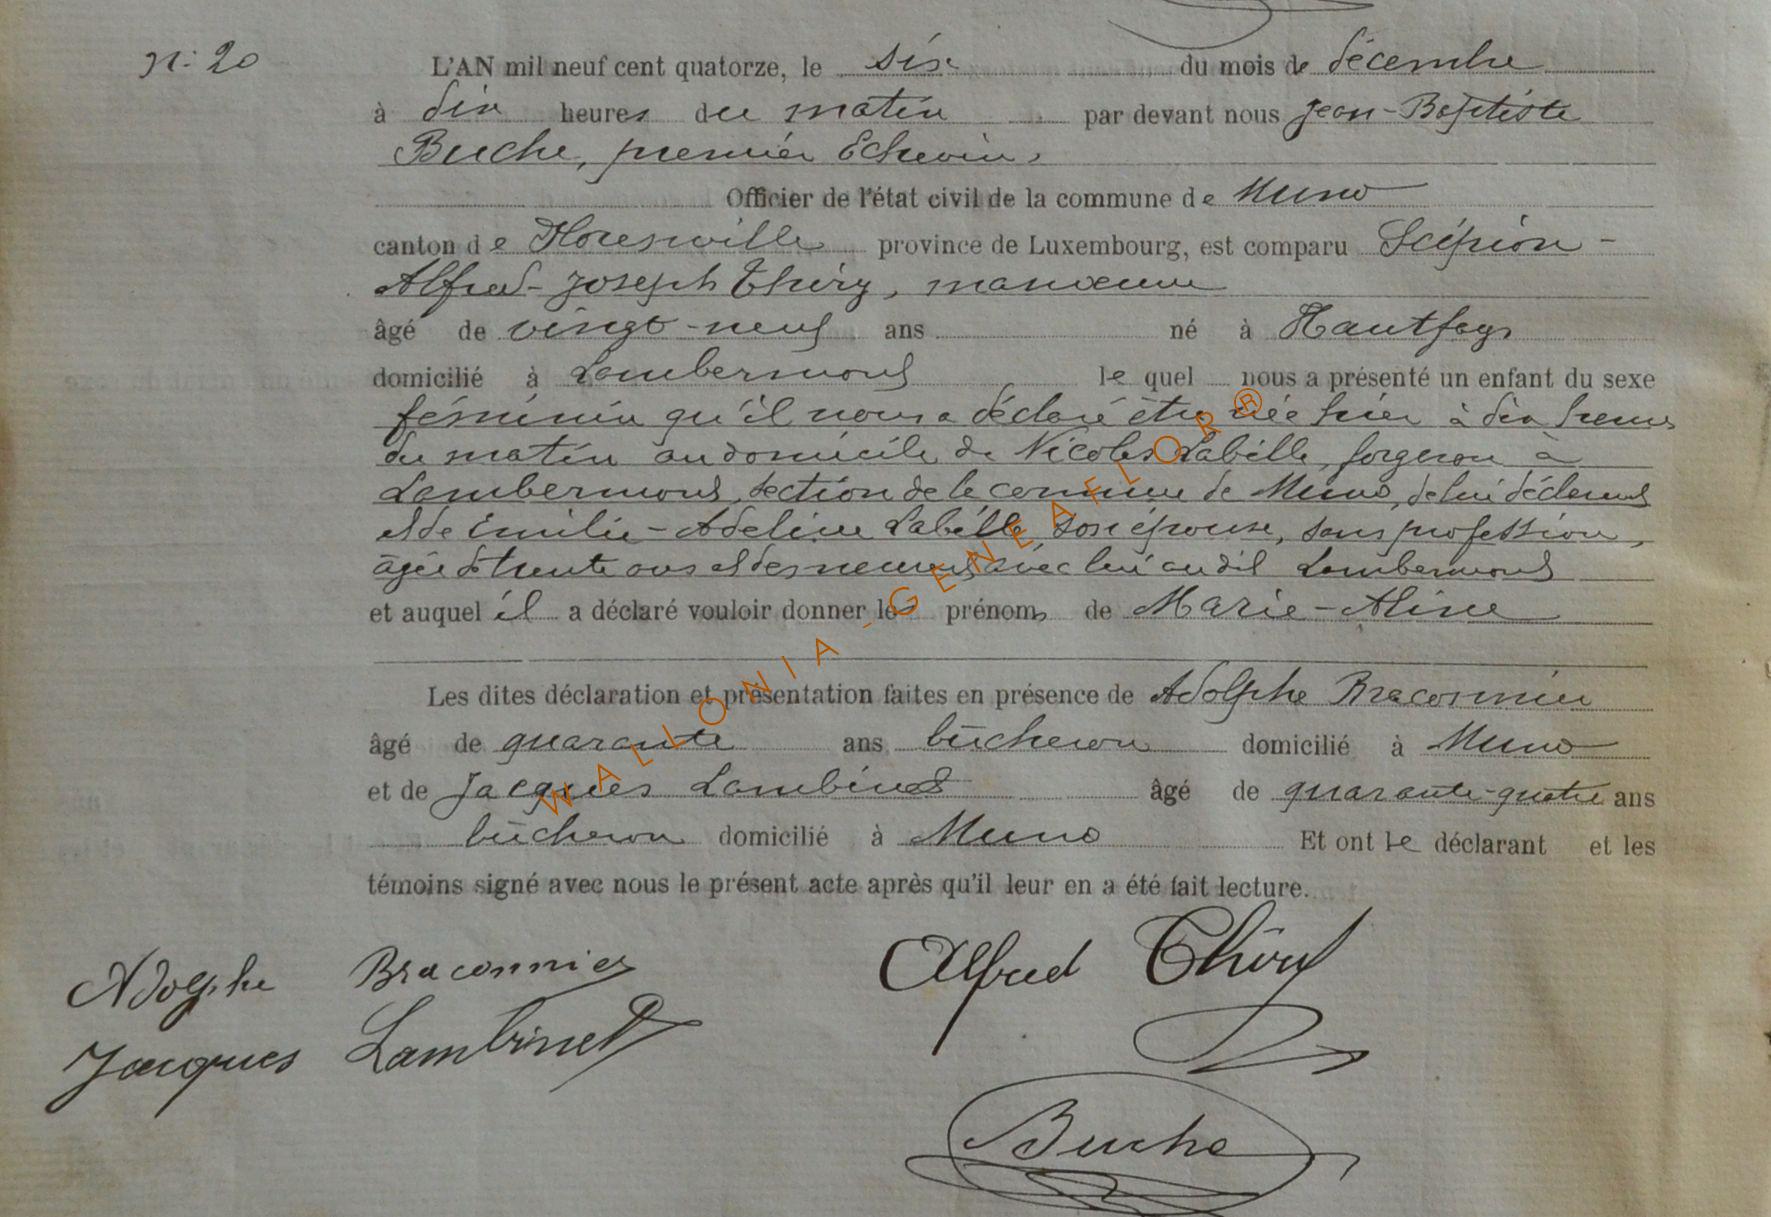 n: 20
L'AN mil neuf cent quatorze, le six du mois de décembre
à dix heures du matin par devant nous Jean-Baptiste
Buche, premier Echevin,
Officier de l'état civil de la commune de Muno
canton de Florenville province de Luxembourg, est comparu Scipion-
Alfred-Joseph Thiry, manœuvre
âgé de vingt-neuf ans né à Hautfays
domicilié à Lambermont lequel nous a présenté un enfant du sexe
féminin qu'il nous a déclaré être née hier à dix heures
du matin au domicile de Nicolas Labille, forgeron à
Lambermont, section de la commune de Muno, de lui déclarant
et de Emilie-Adeline Labille, son épouse, sans profession,
âgée de trente ans et demeurant avec lui au dit Lambermont
et auquel il a déclaré vouloir donner les prénoms de Marie-Aline
Les dites déclaration et présentation faites en présence de Adolphe Braconnier
âgé de quarante ans bûcheron domicilié à Muno
et de Jacques Lambinet âgé de quarante-quatre ans
bûcheron domicilié à Muno Et ont le déclarant et les
témoins signé avec nous le présent acte après qu'il leur en a été fait lecture.
Adolphe Braconnier Alfred Thiry
Jacques Lambinet
Buche
WALLONIA - GENEAFLOR®